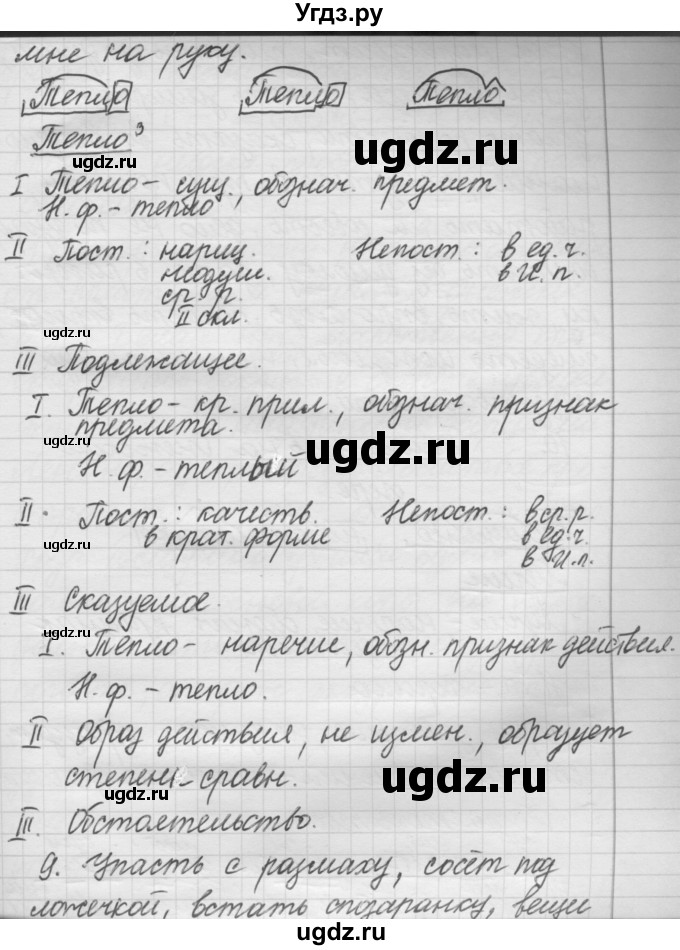 Угдз.ру
мне на руку.
Тепло Тепло Тепло
Тепло³
ugdz.ru
ugdz.ru
I Тепло – сущ., обознач. предмет.
Н. ф. – тепло
ugdz.ru
II Пост.: нариц. Непост.: в ед. ч.
неодуш. в И. п.
ср. р.
II скл.
ugdz.ru
III Подлежащее.
I. Тепло – кр. прил., обознач. признак
предмета.
ugdz.ru
Н. ф. – теплый
ugdz.ru
II. Пост.: качеств. Непост.: в ср. р.
в крат. форме в ед. ч.
в И. п.
ugdz.ru
III Сказуемое.
I. Тепло – наречие, обозн. признак действия.
ugdz.ru
Н. ф. – тепло.
II Образ действия, не измен., образует
степени сравн.
ugdz.ru
ugdz.ru
III. Обстоятельство.
9. Упасть с размаху, сосёт под
ложечкой, встать спозаранку, вещи
ugdz.ru